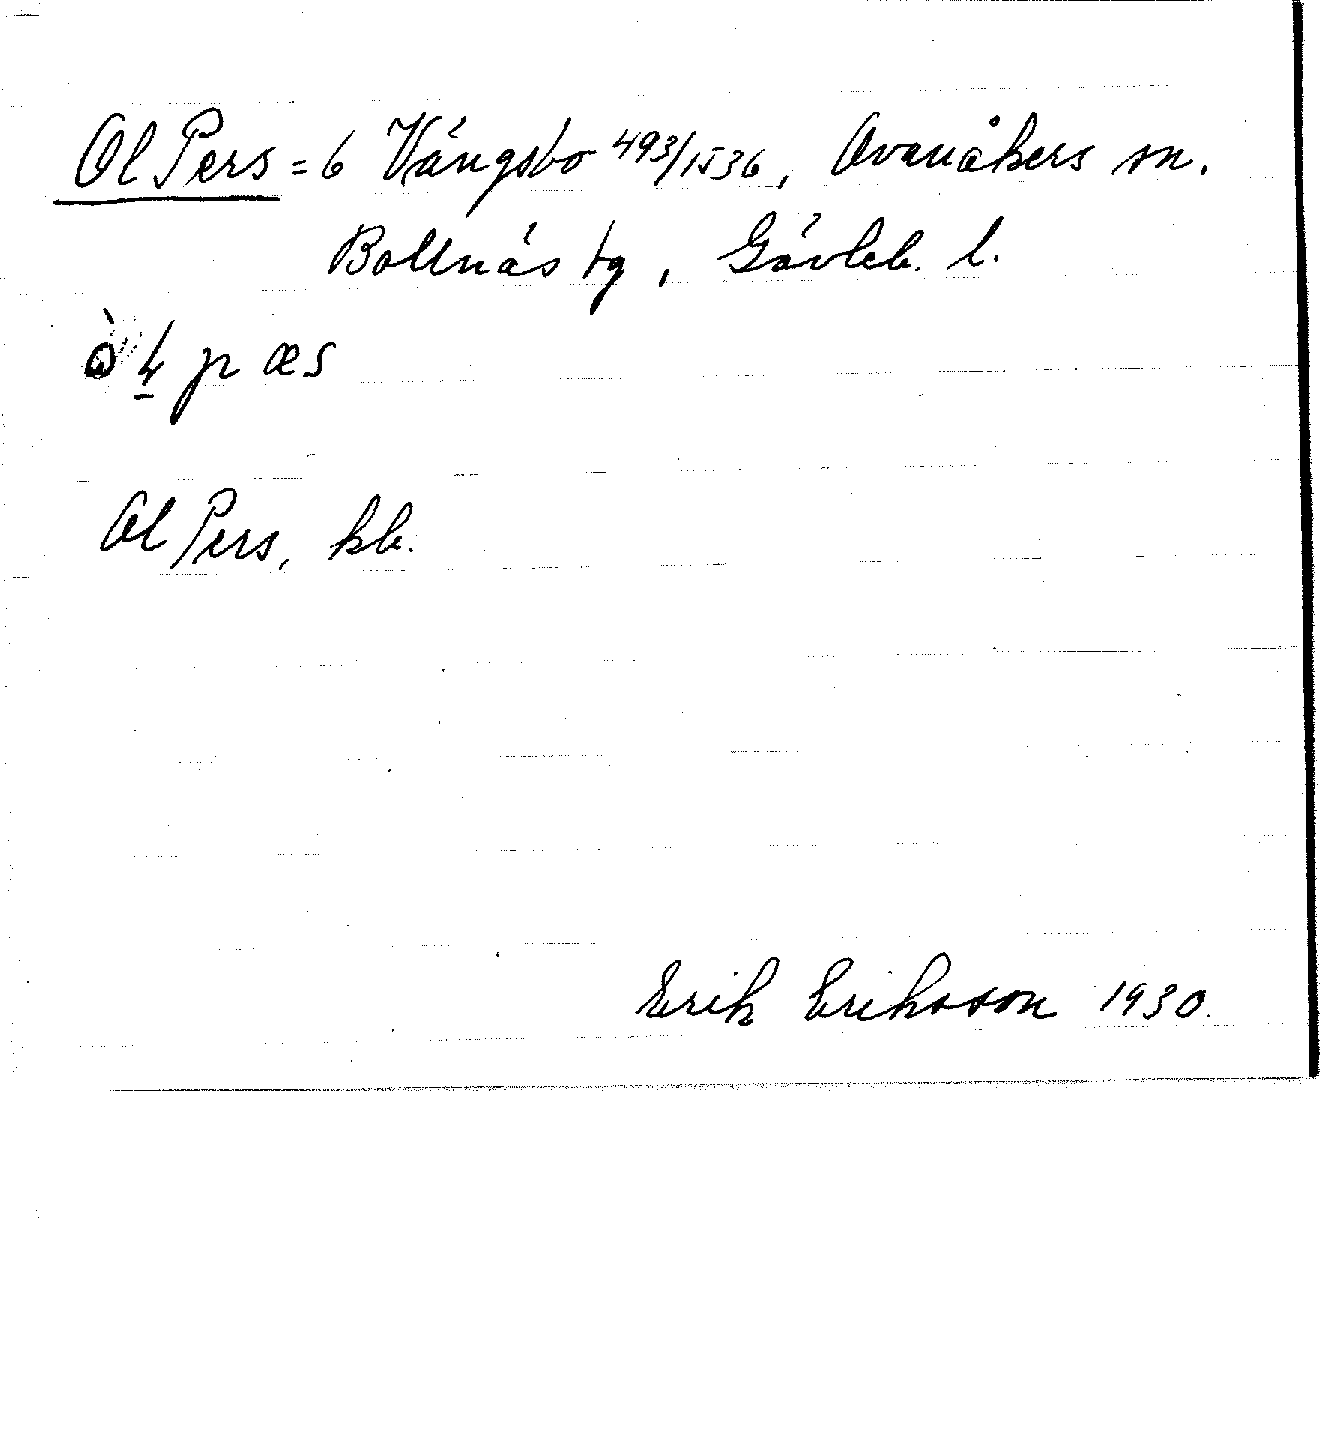 Ol Pers = 6 Vängsbo 493/1536, Ovanåkers sn.
Bollnäs tg, Gävleb. l.
p æs
Ol Pers, kb.
Erik Eriksson 1930.